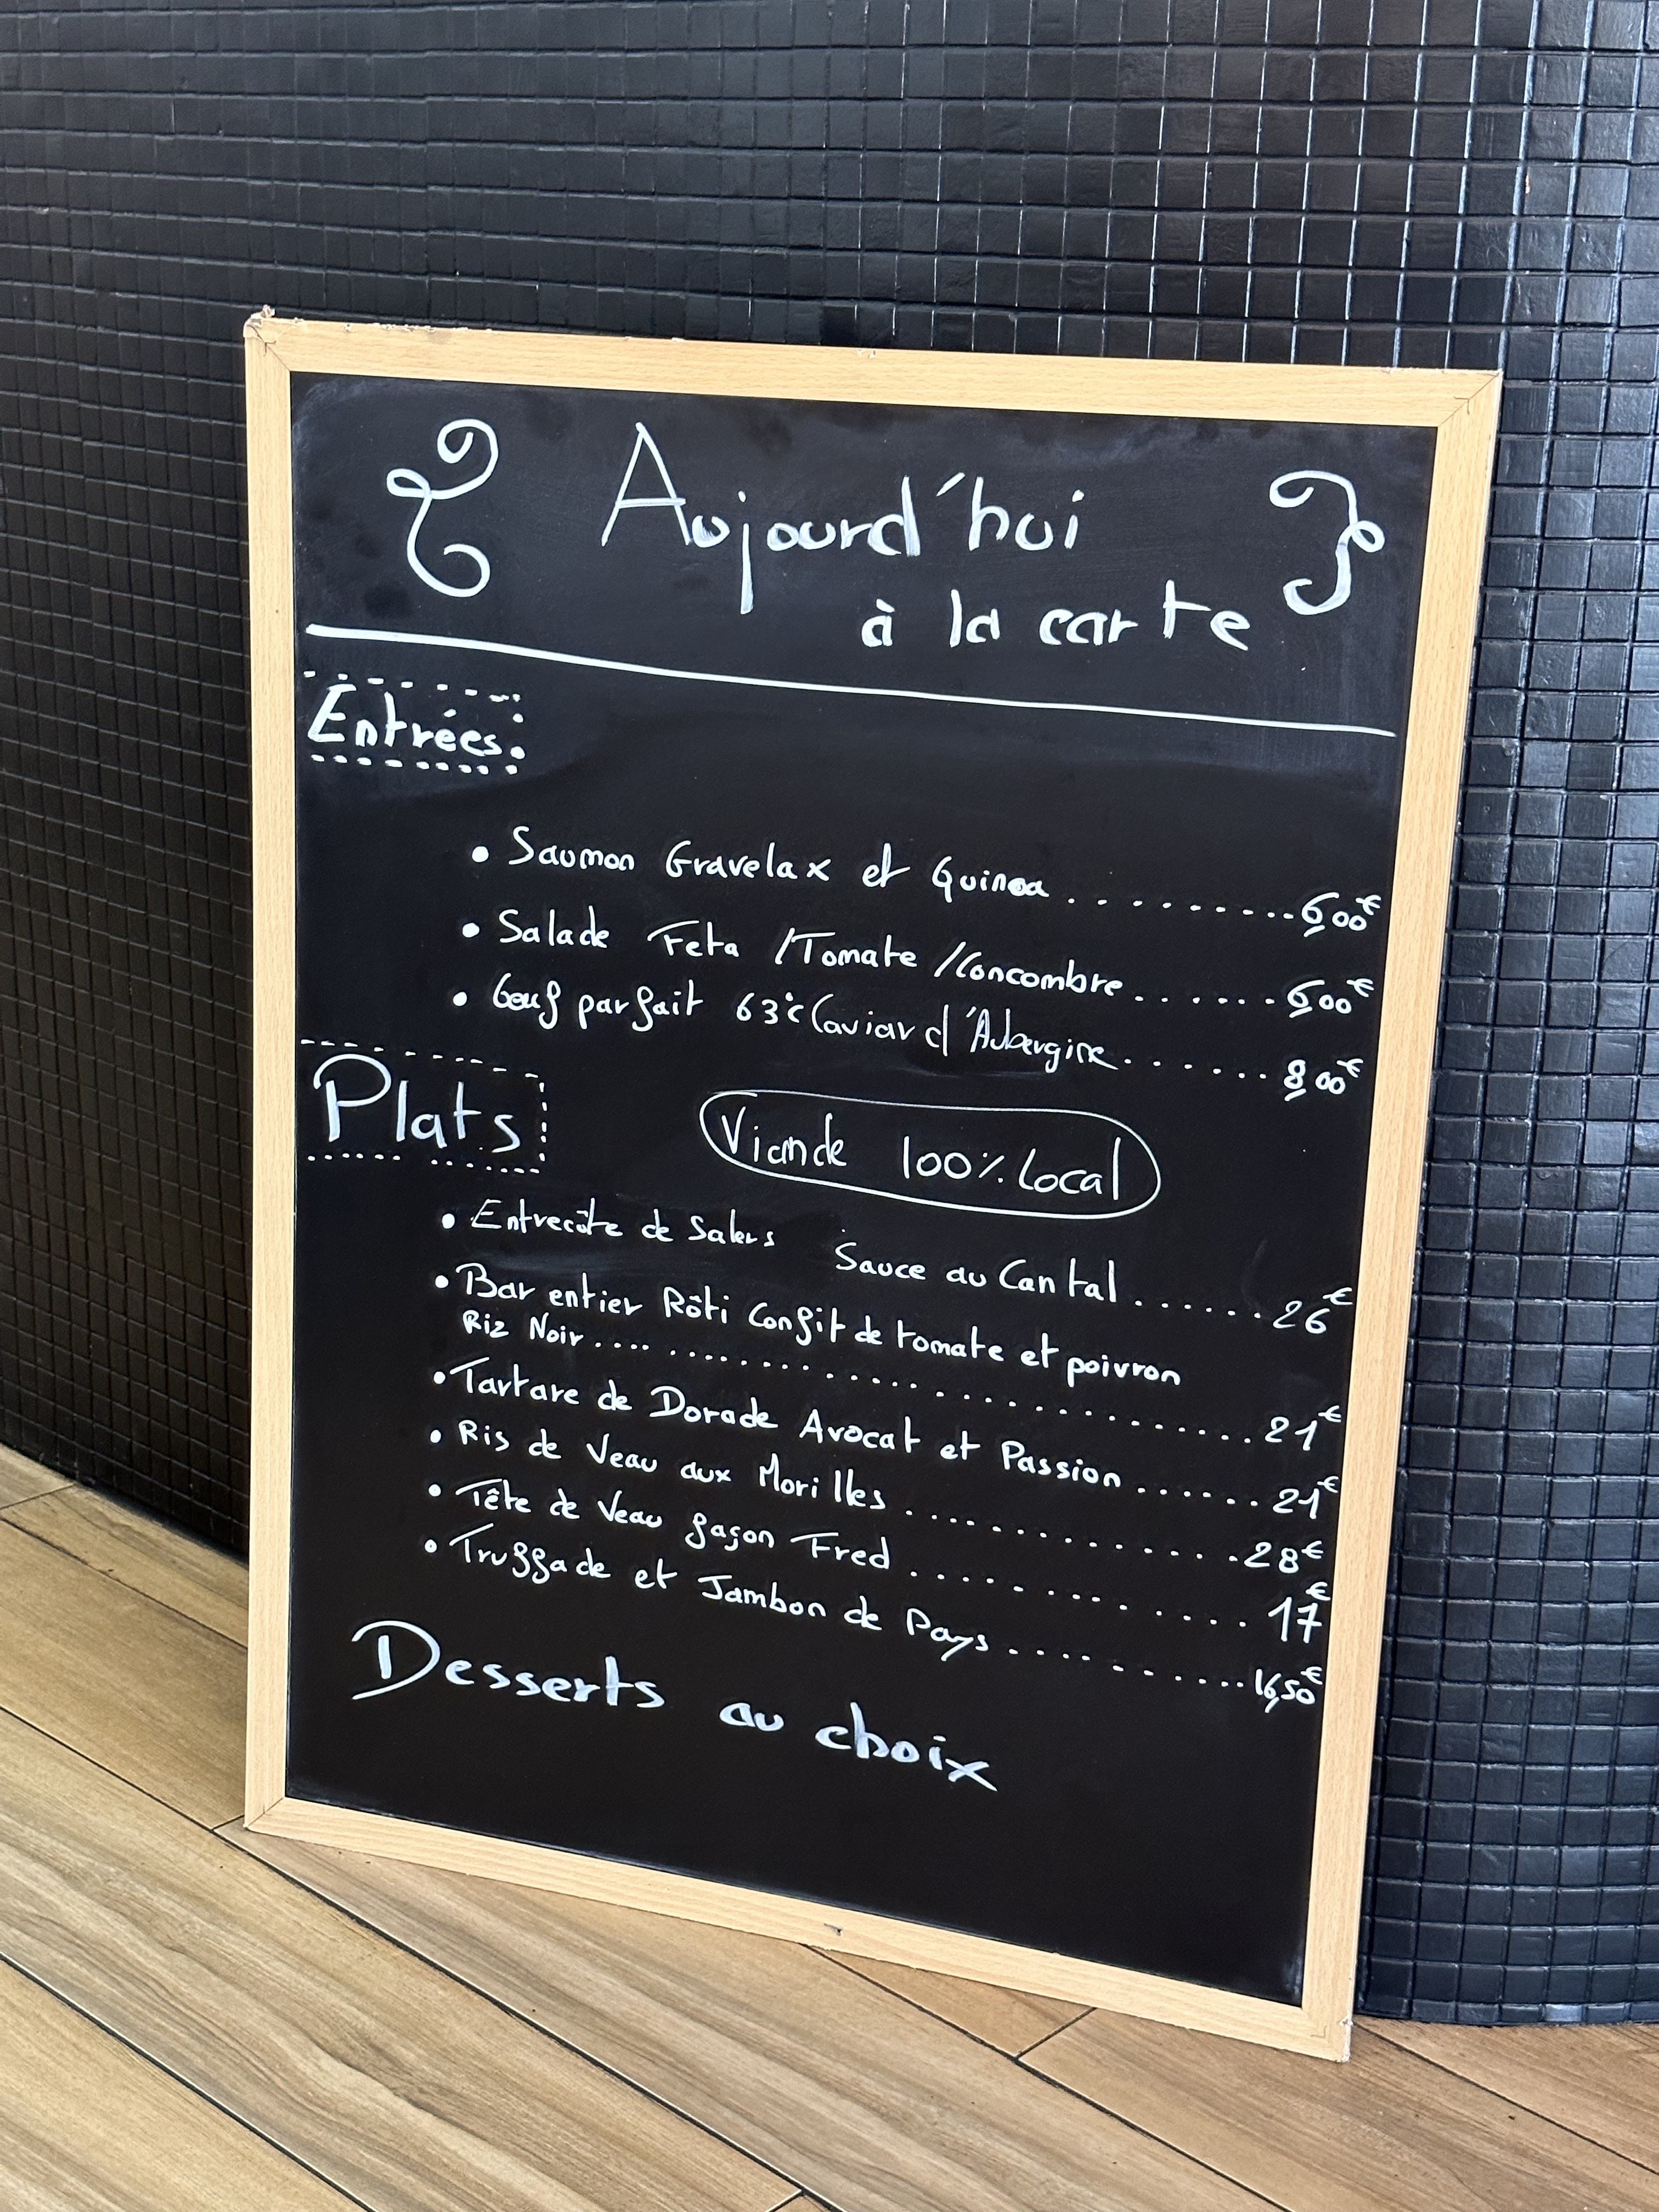 Aujourd'hui
à la carte
Entrées
• Saumon Gravelax et Quinoa .......... 6,00€
• Salade Feta /Tomate /Concombre ....... 6,00€
• Oeuf parfait 63°c Caviar d'Aubergine ....... 8,00€
Plats
Viande 100% Local
• Entrecôte de Salers Sauce au Cantal ...... 26€
• Bar entier Rôti Confit de tomate et poivron
Riz Noir .............................. 21€
• Tartare de Dorade Avocat et Passion ...... 21€
• Ris de Veau aux Morilles .............. 28€
• Tête de Veau façon Fred ............. 17€
• Truffade et Jambon de Pays ........... 16,50€
Desserts au choix